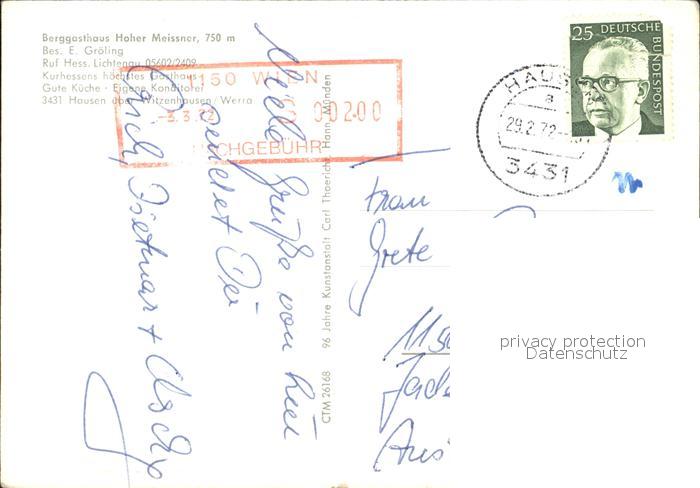 Berggasthaus Hoher Meissner, 750 m
Bes. E. Gröling
Ruf Hess. Lichtenau 05602/2409
Kurhessens höchstes Gasthaus
Gute Küche · Eigene Konditorei
3431 Hausen über Witzenhausen/Werra
1150 WIEN
-3.3.72
00200
NACHGEBÜHR
25 DEUTSCHE BUNDESPOST
HAUS
a
29.2.72
3431
Viele Grüße von hier
sendet Dir
Erich, Dietmar +
CTM 26168 96 Jahre Kunstanstalt Carl Thoericht, Hann. Münden
Frau
Grete
privacy protection
Datenschutz